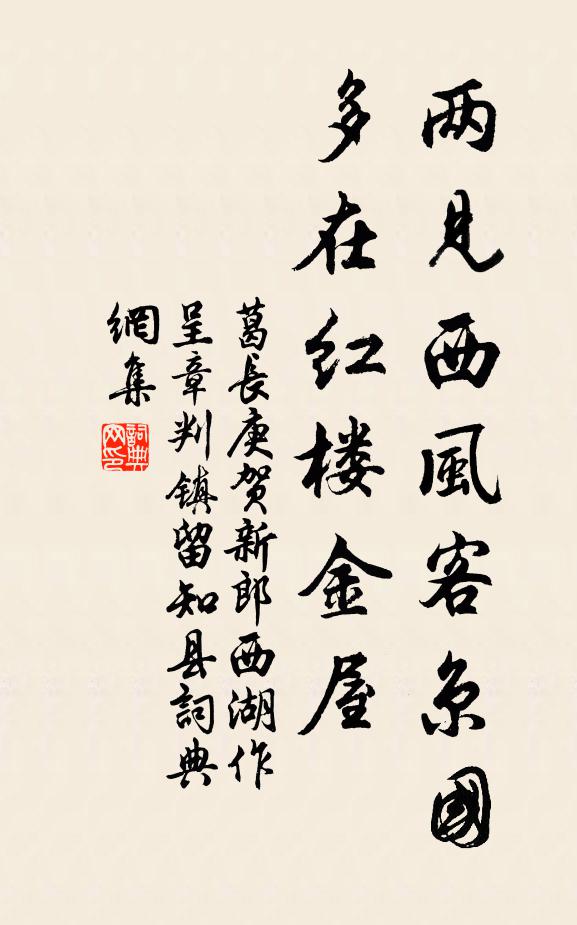 两見西風客京國
多在红楼金屋
葛長庚贺新郎西湖作
呈章判镇留知县詞典
網集
詞典网印